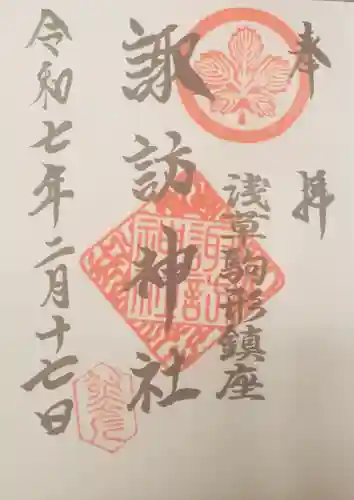 奉拝
浅草駒形鎮座
諏訪神社
令和七年二月十七日
諏訪神社